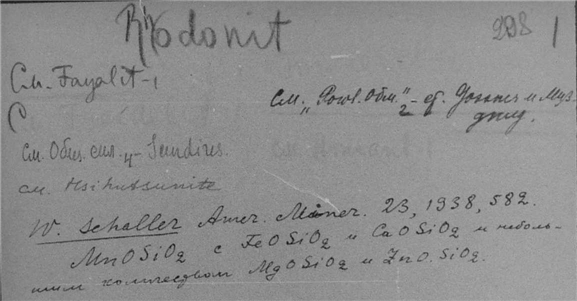 Rhodonit
298 1
См. Fayalit-1
См. "Rowl. Обм."2 - ср. Gossner и Муз-
дгиу.
С
См. Общ. сил. 4 - Sundires.
см. Hsihutsunite
W. Schaller Amer. Miner. 23, 1938, 582.
MnOSiO2 с FeOSiO2 и CaOSiO2 и неболь-
шим количеством MgOSiO2 и ZnO.SiO2.